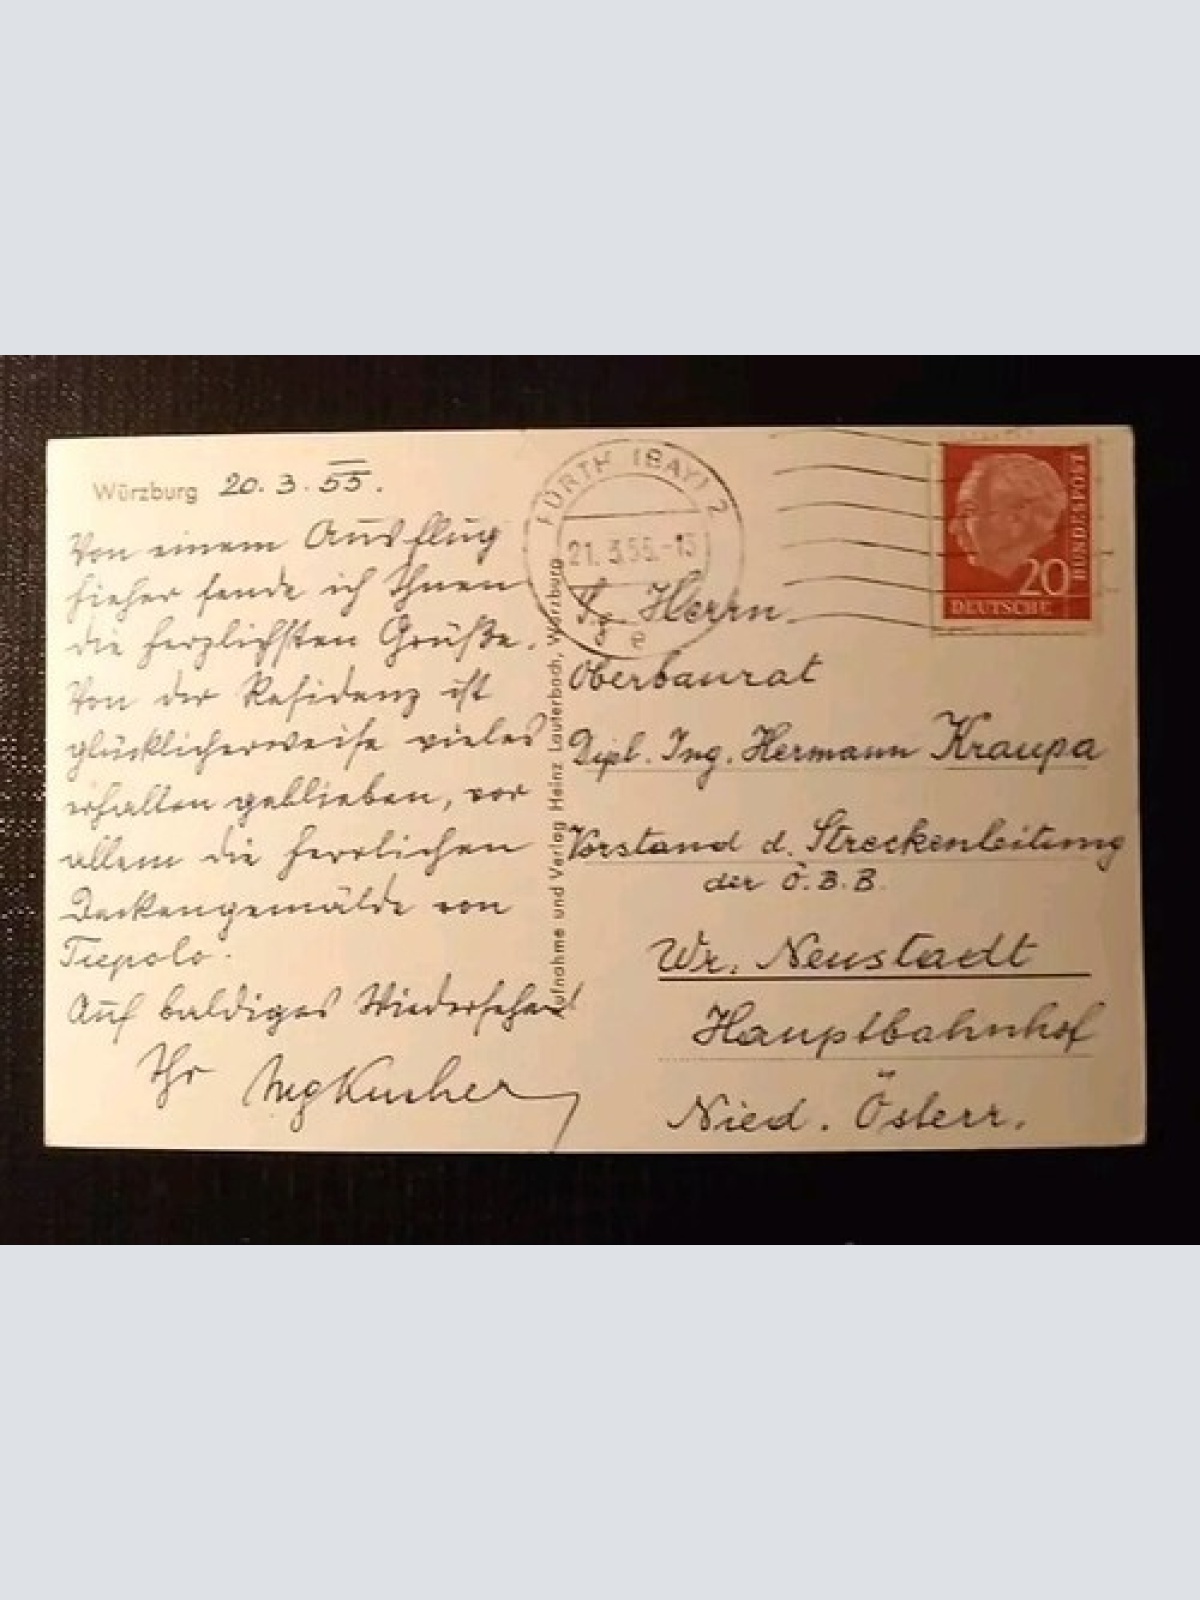 Würzburg 20. 3. 55.
Von einem Ausflug
hieher sende ich Ihnen
die herzlichsten Grüße.
Von der Residenz ist
glücklicherweise vieles
erhalten geblieben, vor
allem die herrlichen
Deckengemälde von
Tiepolo.
Auf baldiges Wiedersehen!
Ihr
Aufnahme und Verlag Heinz Lauterbach, Würzburg
FÜRTH (BAY) 2
21. 3.55.-15
e
20
DEUTSCHE
BUNDESPOST
Herrn
Oberbaurat
Dipl. Ing. Hermann Kraupa
Vorstand d. Streckenleitung
der Ö.B.B.
Wr. Neustadt
Hauptbahnhof
Nied. Österr.